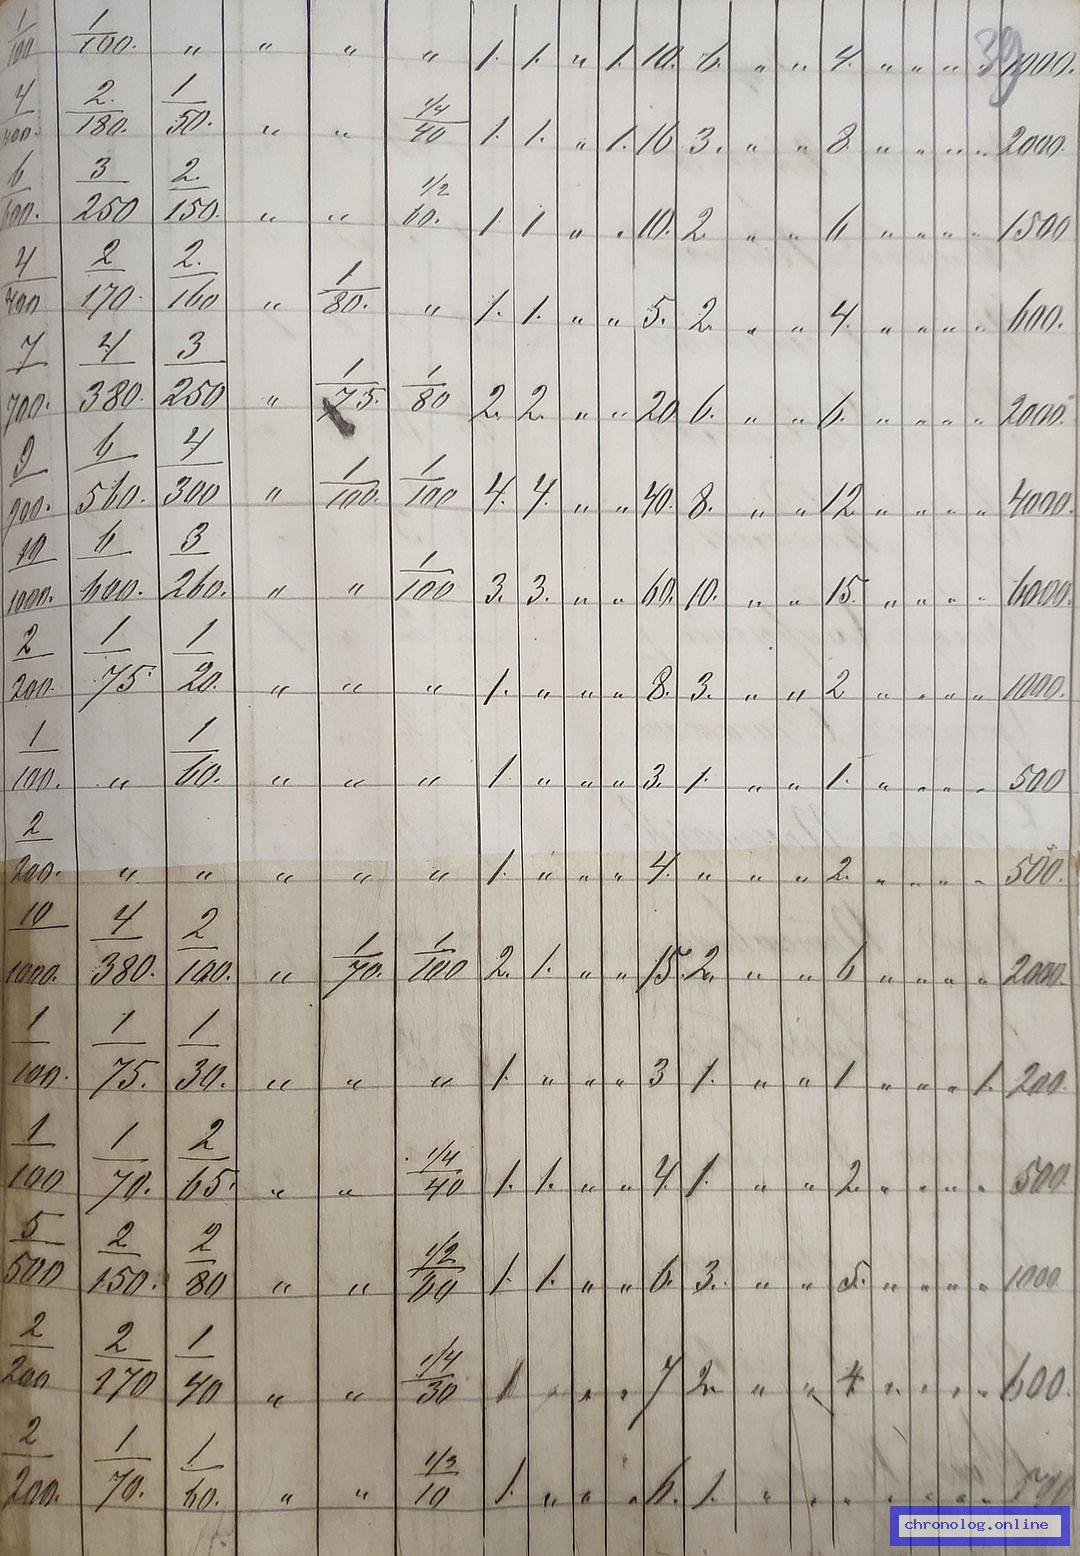 39
1/100 1/100. " " " " 1. 1. " 1. 10. 6. " " 4. " " " " 1000.
4/400. 2/180. 1/50. " " 1/4/40 1. 1. " 1. 16 3. " " 8. " " " " 2000.
6/600. 3/250 2/150. " " 1/2/60. 1. 1 " " 10. 2. " " 6 " " " " 1500
4/400 2/170. 2/160 " 1/80. " 1. 1. " " 5. 2. " " 4. " " " " 600.
7/700. 4/380. 3/250 " 1/75. 1/80 2. 2. " " 20. 6. " " 6. " " " " 2000.
9/900. 6/560. 4/300 " 1/100. 1/100 4. 4. " " 40. 8. " " 12 " " " " 4000.
10/1000. 6/600. 3/260. " " 1/100 3. 3. " " 60. 10. " " 15. " " " " 6000.
2/200. 1/75. 1/20. " " " 1. " " " 8. 3. " " 2 " " " " 1000.
1/100. " 1/60. " " " 1. " " " 3. 1. " " 1. " " " " 500
2/200. " " " " " 1. " " " 4. " " " 2. " " " " 500.
10/1000. 4/380. 2/100. " 1/70. 1/100 2. 1. " " 15. 2. " " 6 " " " " 2000.
1/100. 1/75. 1/30. " " " 1. " " " 3 1. " " 1 " " " 1. 200.
1/100 1/70. 2/65. " " 1/4/40 1. 1. " " 4. 1. " " 2. " " " " 500.
5/500 2/150. 2/80 " " 1/2/60 1. 1. " " 6. 3. " " 5. " " " " 1000
2/200 2/170 1/40 " " 1/4/30 1 " " " 7 2. " " 4 " " " " 600.
2/200. 1/70. 1/60. " " 1/3/10 1. " " " 6. 1. " " " " " " "
chronolog.online